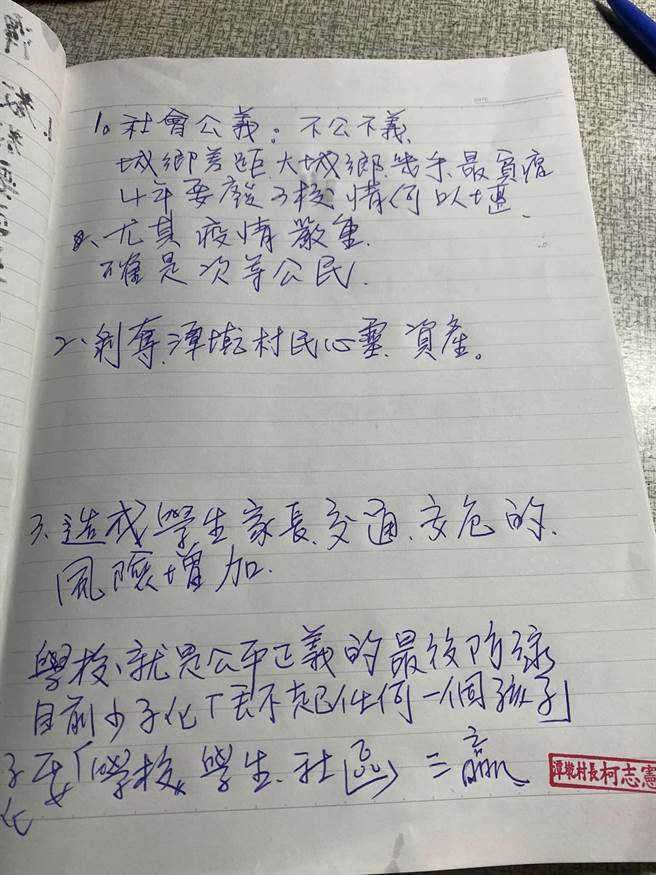 1。社會公義：不公不義
城鄉差距、大城鄉、幾乎最貧瘠
4年要廢3校 情何以堪、
尤其疫情嚴重、
確是次等公民、
2、剝奪潭墘村民心靈資產。
3、造成學生家長、交通、安危的、
風險增加、
學校、就是公平正義的最後防線
目前少子化「丟不起任何一個孩子」
要「學校、學生、社區」三贏
潭墘村長柯志憲